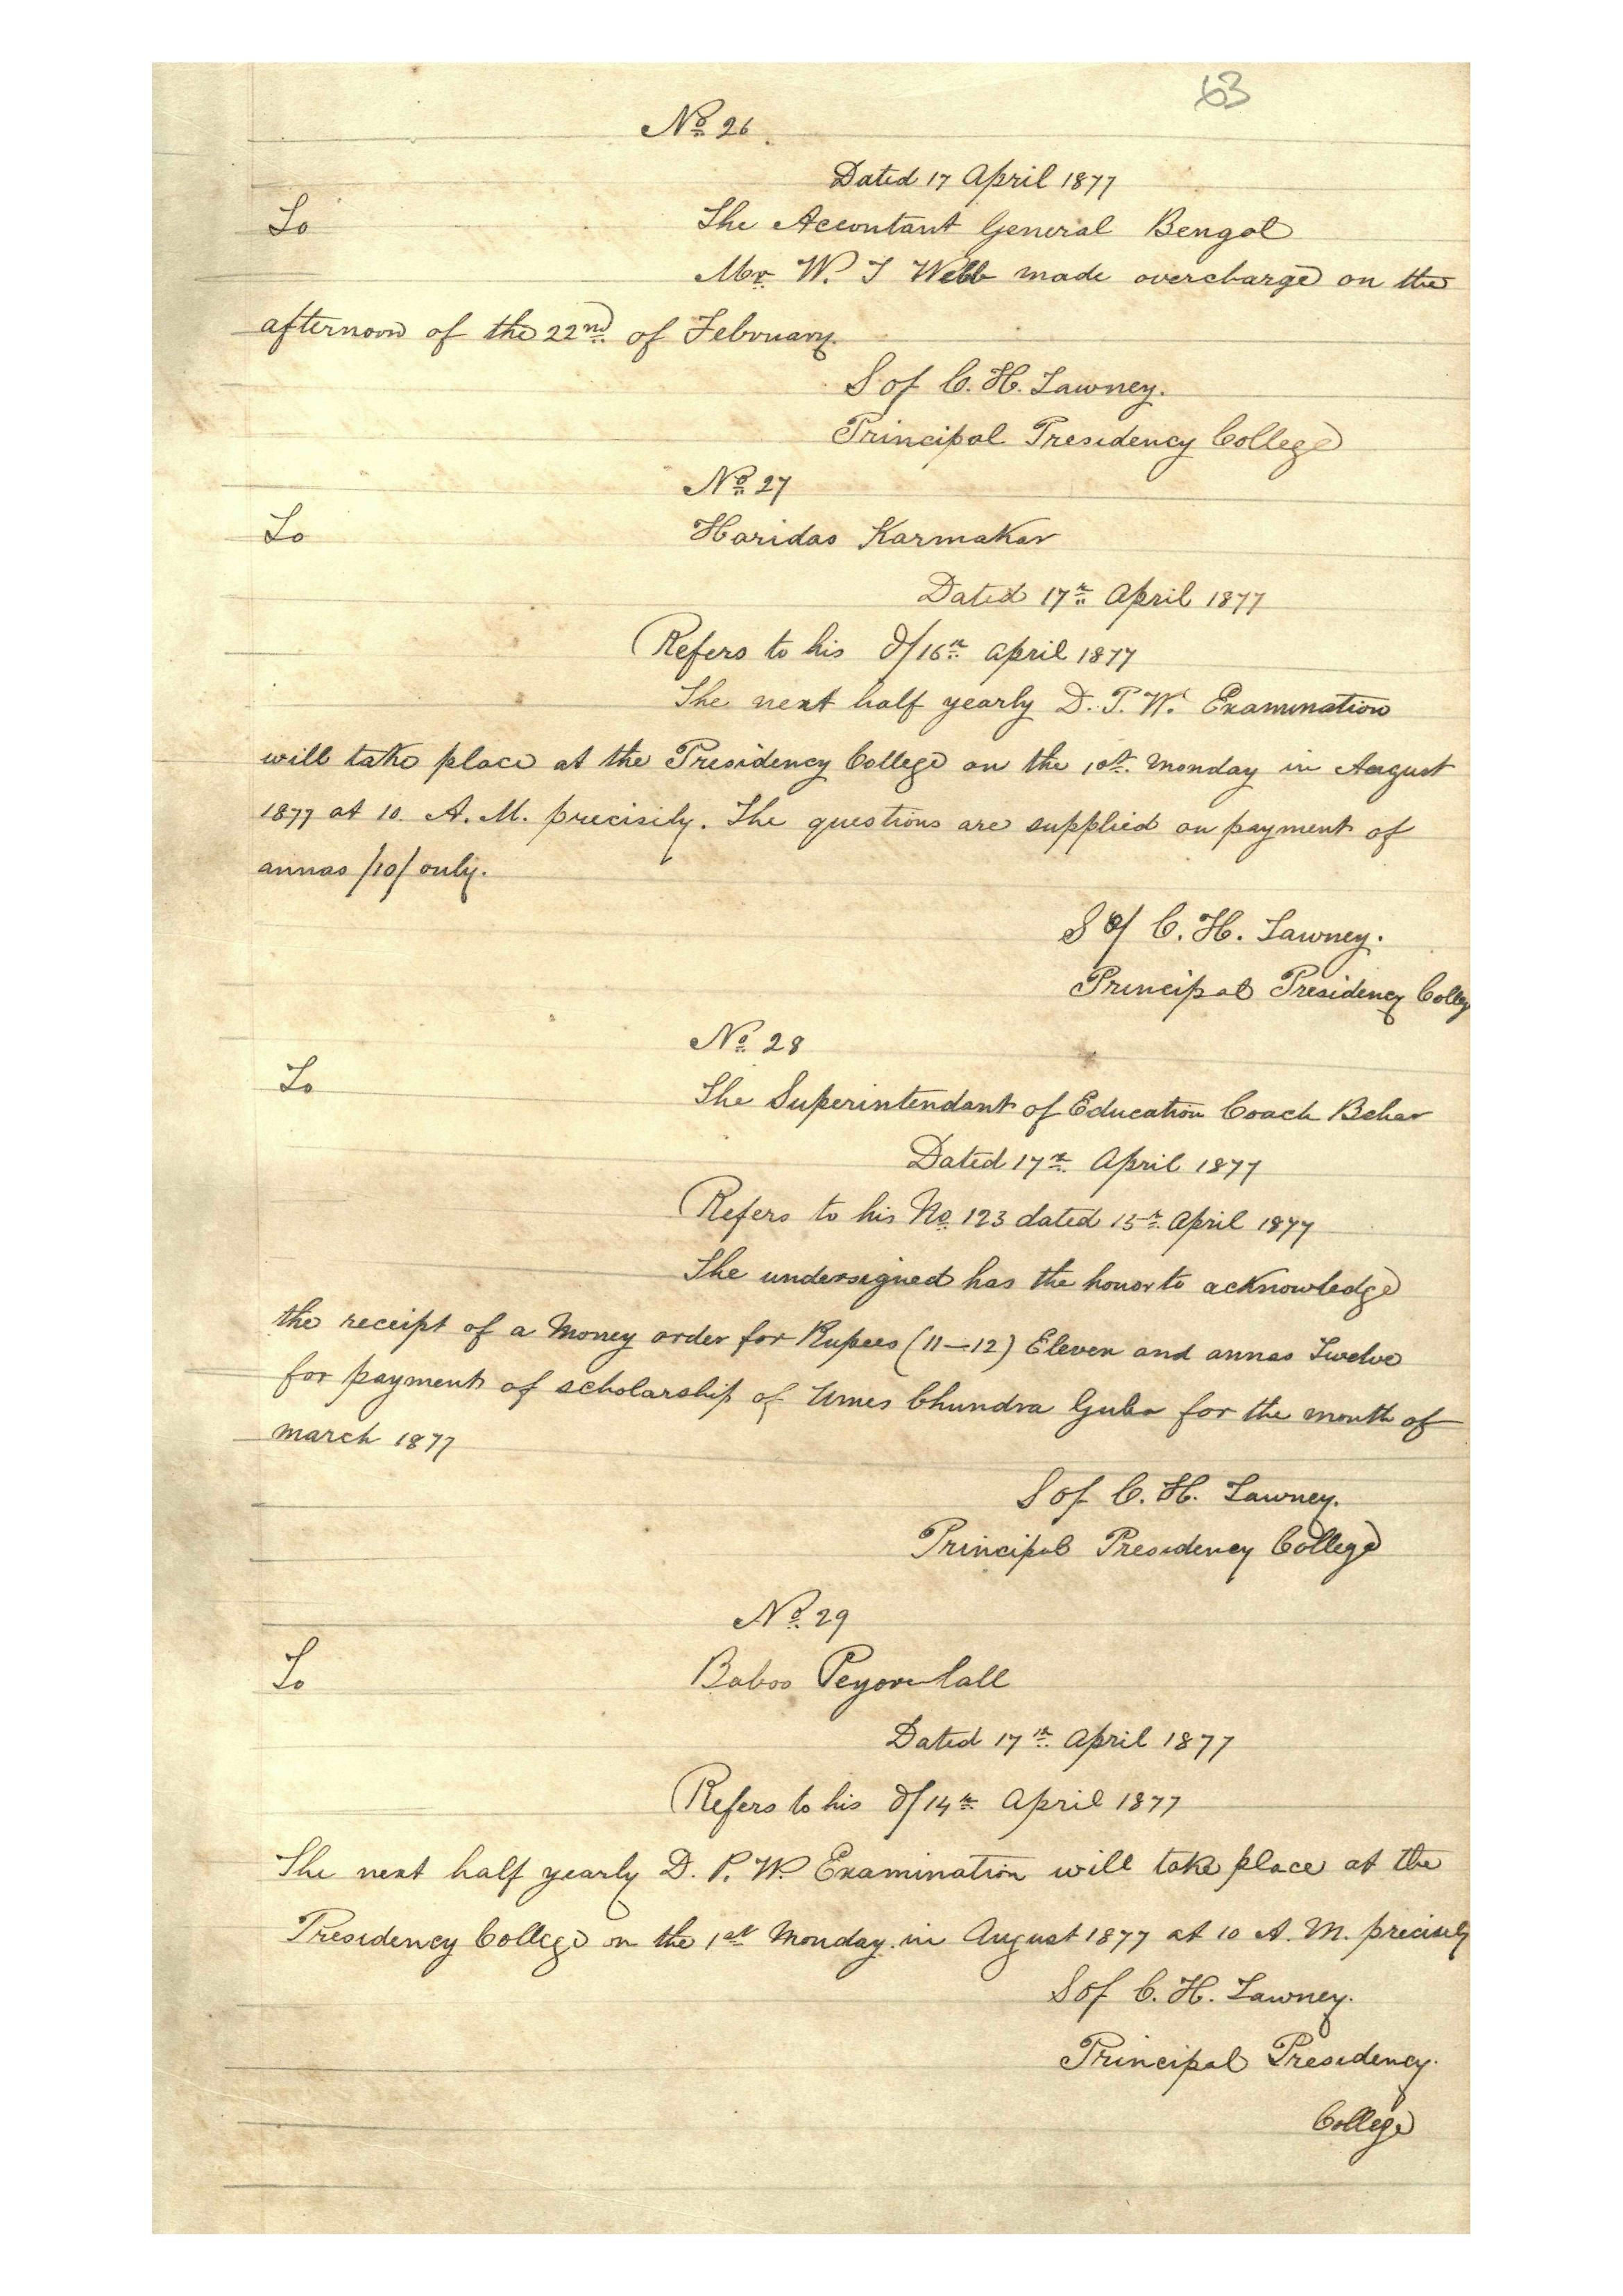 63
No. 26
Dated 17 April 1877
To The Accontant General Bengal
Mr. W. T Webb made overcharge on the
afternoon of the 22nd of February.
Sd/ C. H. Tawney.
Principal Presidency College
No. 27
To Haridas Karmakar
Dated 17th April 1877
Refers to his d/16th April 1877
The next half yearly D. P. W. Examination
will take place at the Presidency College on the 1st. Monday in August
1877 at 10. A. M. precisely. The questions are supplied on payment of
annas /10/ only.
Sd/ C. H. Tawney.
Principal Presidency Colleg
No. 28
To The Superintendant of Education Coach Behar
Dated 17th April 1877
Refers to his No. 123 dated 15th April 1877
The undersigned has the honor to acknowledge
the receipt of a Money order for Rupees (11—12) Eleven and annas Twelve
for payment of scholarship of Umes Chundra Guha for the month of
march 1877
Sd/ C. H. Tawney.
Principal Presidency College
No. 29
To Baboo Lall
Dated 17th April 1877
Refers to his d/14th April 1877
The next half yearly D. P. W. Examination will take place at the
Presidency College on the 1st Monday in August 1877 at 10 A. M. precisely
Sd/ C. H. Tawney.
Principal Presidency.
College